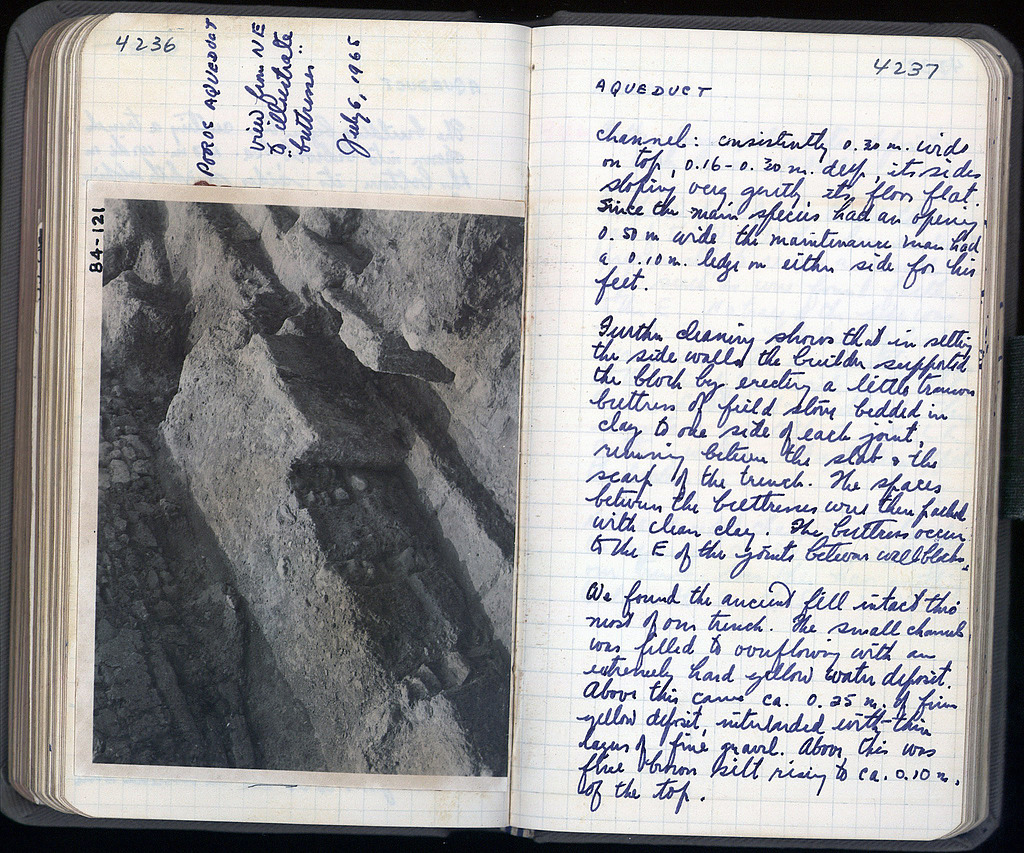 4236
POROS AQUEDUCT
view from NE
to illustrate
"buttresses"
July 6, 1965
84-121
4237
AQUEDUCT
channel: consistently 0.30 m. wide
on top, 0.16-0.20 m. deep, its sides
sloping very gently, its floor flat.
Since the main species had an opening
0.50 m wide the maintenance man had
a 0.10 m. ledge on either side for his
feet.
Further cleaning shows that in setting
the side walls the builder supported
the block by erecting a little
buttress of field stone bedded in
clay to one side of each joint,
running between the slab & the
scarp of the trench. The spaces
between the buttresses were then packed
with clean clay. The buttress occur
to the E of the joints between wall blocks.
We found the ancient fill intact thro'
most of our trench. The small channel
was filled to overflowing with an
extremely hard yellow water deposit.
Above this came ca. 0.25 m. of firm
yellow deposit, interlarded with thin
layers of fine gravel. Above this was
fine brown silt rising to ca. 0.10 m.
of the top.